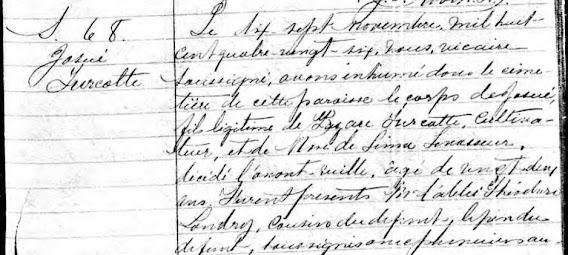 S. 68.
Josué
Turcotte
Le dix sept Novembre, mil huit
cent quatre-vingt-six, nous, vicaire
soussigné, avons inhumé dans le cime-
tière de cette paroisse le corps de Josué,
fils légitime de Lazare Turcotte, cultiva-
teur, et de Levasseur,
décédé l'avant-veille, agé de vingt-deux
ans, Furent présents Mr l'abbé Théodule
Landry, cousin du défunt, le père du
défunt, soussignés avec plusieurs au-